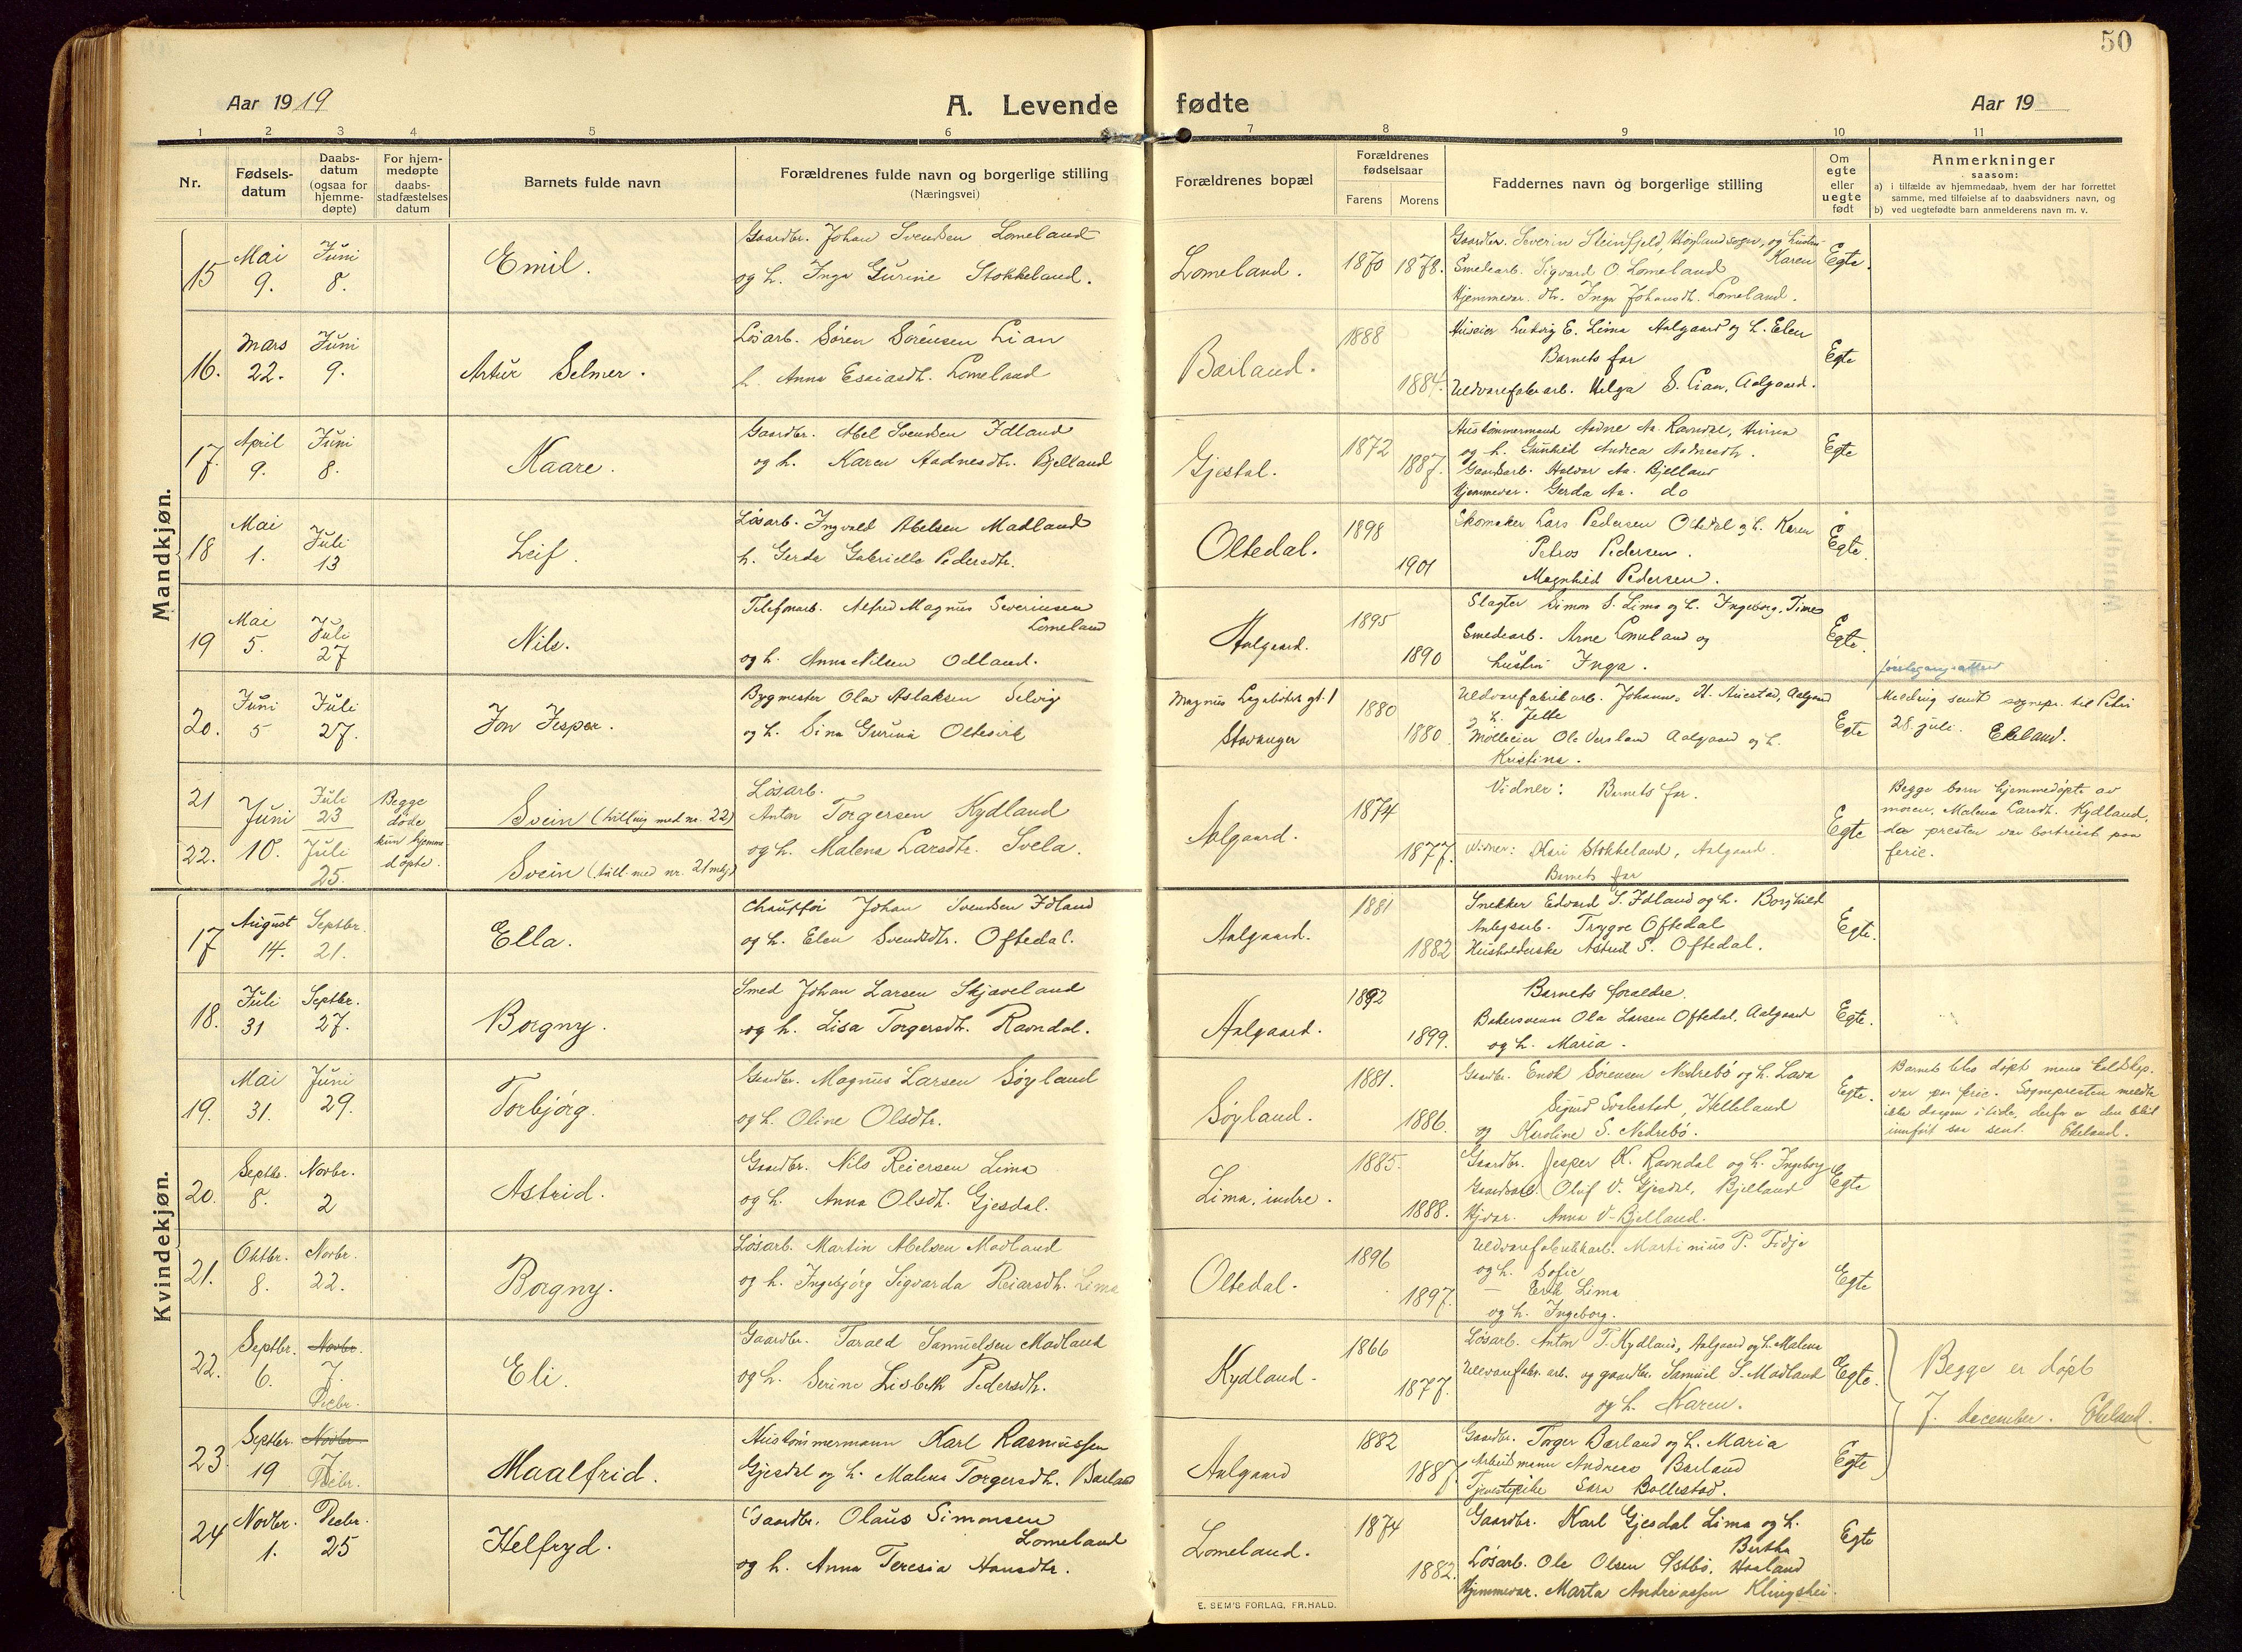 50
Aar 1919
A. Levende fødte
Aar 19
1 2 3 4 5 6 7 8 9 10 11
Nr.
Fødsels-
datum
Daabs-
datum
(ogsaa for
hjemme-
døpte)
For hjem-
medøpte
daabs-
stadfæstelses
datum
Barnets fulde navn
Forældrenes fulde navn og borgerlige stilling
(Næringsvei)
Forældrenes bopæl
Forældrenes
fødselsaar
Farens Morens
Faddernes navn og borgerlige stilling
Om
egte
eller
uegte
født
Anmerkninger
saasom:
a) i tilfælde av hjemmedaab, hvem der har forrettet
samme, med tilføielse av to daabsvidners navn, og
b) ved uegtefødte barn anmelderens navn m. v.
Mandkjøn.
15
Mai
9.
Juni
8.
Emil.
Gaardbr. Johan Svendsen Lomeland
og h. Inga Gurine Stokkeland.
Lomeland.
1870 1878.
Gaardbr. Severin Steinfjeld, Høylandsogn, og hustru
Karen
Smedearb. Sigvard O. Lomeland
Hjemmevær. dtr. Inga Johansdt. Lomeland.
Egte.
16.
Mars
22.
Juni
9.
Artur Selmer.
Løsarb. Søren Sørensen Lian
h. Anna Esaiasdt. Lomeland
Bærland.
1888
1884.
Huseier Ludvig E. Lima Aalgaard og h. Elen
Barnets far
Uldvarefabr.arb. Helga S. Lian, Aalgaard.
Egte
17.
April
9.
Juni
8.
Kaare.
Gaardbr. Abel Svendsen Idland
og h. Karen Aadnesdtr. Bjelland
Gjestal.
1872
1887.
Hustømmermand Aadne Aa. Ravndal,
og h. Gunhild Andrea Aadnesdtr.
Gaardarb. Halvar Aa. Bjelland
Hjemmevær. Gerda Aa. do
Egte
18
Mai
1.
Juli
13
Leif.
Løsarb. Ingvald Abelsen Madland
h. Gerda Gabrielle Pedersdtr.
Oltedal.
1898
1901
Skomaker Lars Pedersen Oltedal og h. Karen
Petros Pedersen.
Magnhild Pedersen.
Egte.
19
Mai
5.
Juli
27
Nils.
Telefonarb. Alfred Magnus Severinsen
Lomeland
og h. Anna Nilsen Odland.
Aalgaard.
1895
1890
Slagter Simon S. Lima og h. Ingeborg, Time
Smedearb. Arne Lomeland og
hustru Inga.
Egte.
20.
Juni
5
Juli
27.
Jon Jesper.
Bygmester Olav Aslaksen Selvig
og h. Sina Gurina Oltesvik
Magnus Lagabøters gt. 1
Stavanger
1880
1880
Uldvarefabrikarb. Johannes H. Auestad, Aalgaard
og h. Jette
Mølleeier Ole Versland Aalgaard og h.
Kristina.
Egte
Melding sendt sognepr. til Petri
28. juli. Ekeland.
21
22.
Juni
10.
Juli
23
Juli
25.
Begge
døde
kun hjemme-
døpte.
Svein (tvilling med nr. 22)
Svein (tvill. med nr. 21 mkj)
Løsarb.
Anton Torgersen Kydland
og h. Malena Larsdtr. Svela.
Aalgaard.
1874
1877.
Vidner: Barnets far.
Vidner: Kari Stokkeland, Aalgaard.
Barnets far
Egte
Begge barn hjemmedøpte av
moren, Malena Larsdt. Kydland,
da presten var bortreist paa
ferie.
Kvindekjøn.
17
August
14.
Septbr.
21.
Ella.
Chauffør Johan Svendsen Idland
og h. Elen Svendsdtr. Oftedal.
Aalgaard.
1881
1882
Snekker Edvard S. Idland og h. Borghild
Anlegsarb. Trygve Oftedal
Husholderske Astrid S. Oftedal.
Egte.
18.
Juli
31
Septbr.
27.
Borgny.
Smed Johan Larsen Skjæveland
og h. Lisa Torgersdt. Ravndal.
Aalgaard.
1892
1899.
Barnets forældre.
Bakersvenn Ola Larsen Oftedal, Aalgaard
og h. Maria.
Egte.
19.
Mai
31.
Juni
29.
Torbjørg.
Gaardbr. Magnus Larsen Søyland
og h. Oline Olsdtr.
Søyland.
1881.
1886.
Gaardbr. Enok Sørensen Nedrebø og h. Lava
Sigurd Svalestad, Helleland
og Karoline S. Nedrebø.
Egte.
Barnet blev døpt mens
var paa ferie. Sognepresten meldte
ikke daapen i tide, derfor er den blit
innført saa sent. Ekeland.
20.
Septbr.
8.
Novbr.
2
Astrid.
Gaardbr. Nils Reiersen Lima
og h. Anna Olsdt. Gjesdal.
Lima, indre.
1885.
1888.
Gaardbr. Jesper K. Ravndal og h. Ingeborg
Gaardarb. Oluf V. Gjesdal, Bjelland
Hjvær. Anna V. Bjelland.
Egte
21.
Oktbr.
8.
Novbr.
22.
Borgny.
Løsarb. Martin Abelsen Madland
og h. Ingebjørg Sigvarda Reiarsdt. Lima
Oltedal.
1896
1897.
Uldvarefabrikkarb. Martinius P. Fidje
og h. Sofie
— Erik Lima
og h. Ingeborg.
Egte
22.
Septbr.
6.
Novbr.
7.
Decbr.
Eli.
Gaardbr. Tarald Samuelsen Madland
og h. Serine Lisbeth Pedersdt.
Kydland.
1866
1877.
Løsarb. Anton T. Kydland, Aalgaard og h. Malena
Uldvarefabr. arb. og gaardbr. Samuel S. Madland
og h. Karen.
Egte.
Begge er døpt
7. december. Ekeland.
23.
Septbr.
19
Novbr.
7
Decbr.
Maalfrid.
Hustømmermann Karl Rasmussen
Gjesdal og h. Malena Torgersdt. Bærland
Aalgaard
1882
1887.
Gaardbr. Torger Bærland og h. Maria
Arbeidsmann Andreas Bærland
Tjenestepike Sara Bollestad.
Egte
24
Novbr.
1.
Decbr.
25
Helfryd.
Gaardbr. Olaus Simonsen
Lomeland
og h. Anna Teresia Hansdtr.
Lomeland.
1874
1882.
Gaardbr. Karl Gjesdal Lima og h.
Bertha
Løsarb. Ole Olsen Østbø, Haaland
Hjemmevær. Marta Andreassen Klingshei.
Egte
E. SEM'S FORLAG, FR.HALD.